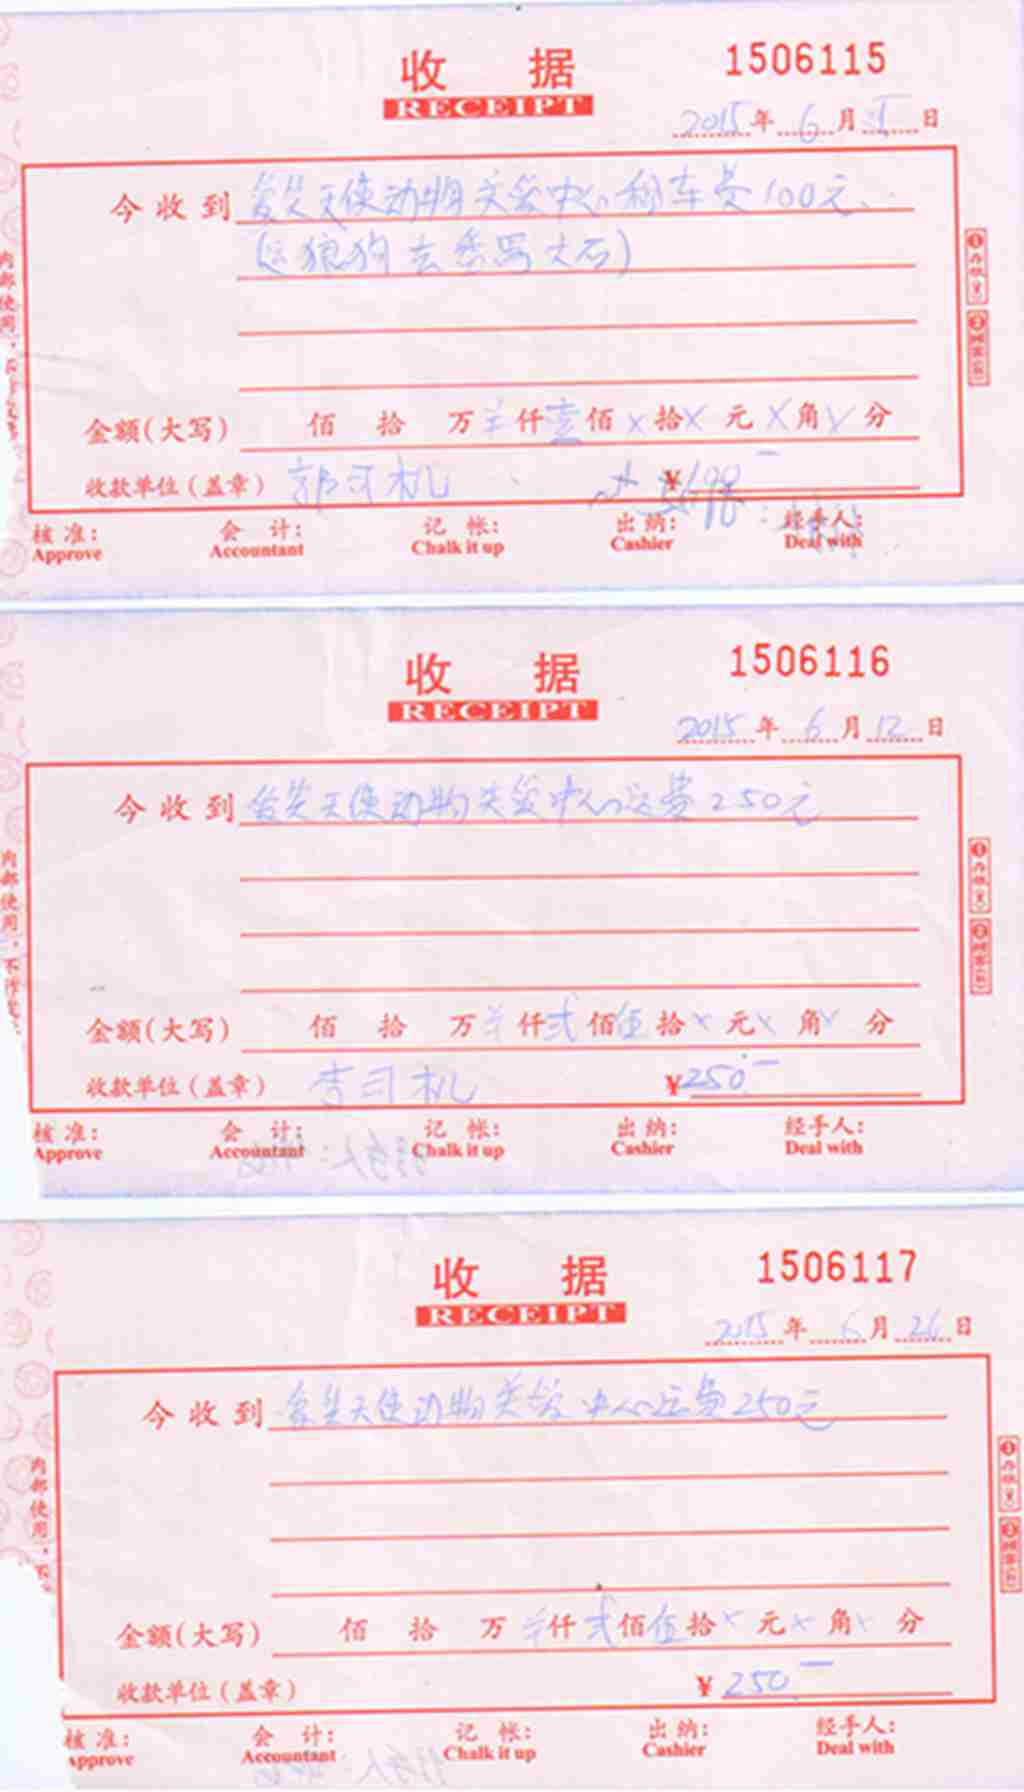 收 据 1506115
RECEIPT
2015年6月 日
今收到 天使动物关爱中心租车费100元、
狼狗去 大石)
金额(大写) 佰 拾 万 ¥仟壹佰×拾×元×角×分
收款单位(盖章) 郭司机 ¥
核准: 会 计: 记 帐: 出 纳: 经手人:
Approve Accountant Chalk it up Cashier Deal with
收 据 1506116
RECEIPT
2015年6月12日
今收到 天使动物关爱中心运费250元
金额(大写) 佰 拾 万 ¥仟贰佰伍拾×元×角×分
收款单位(盖章) 李司机 ¥250.—
核准: 会 计: 记 帐: 出 纳: 经手人:
Approve Accountant Chalk it up Cashier Deal with
收 据 1506117
RECEIPT
2015年6月26日
今收到 天使动物关爱中心运费250元
金额(大写) 佰 拾 万 ¥仟贰佰伍拾×元×角×分
收款单位(盖章) ¥250.—
核准: 会 计: 记 帐: 出 纳: 经手人:
Approve Accountant Chalk it up Cashier Deal with
内部使用,
内部使用,不
内部使用,